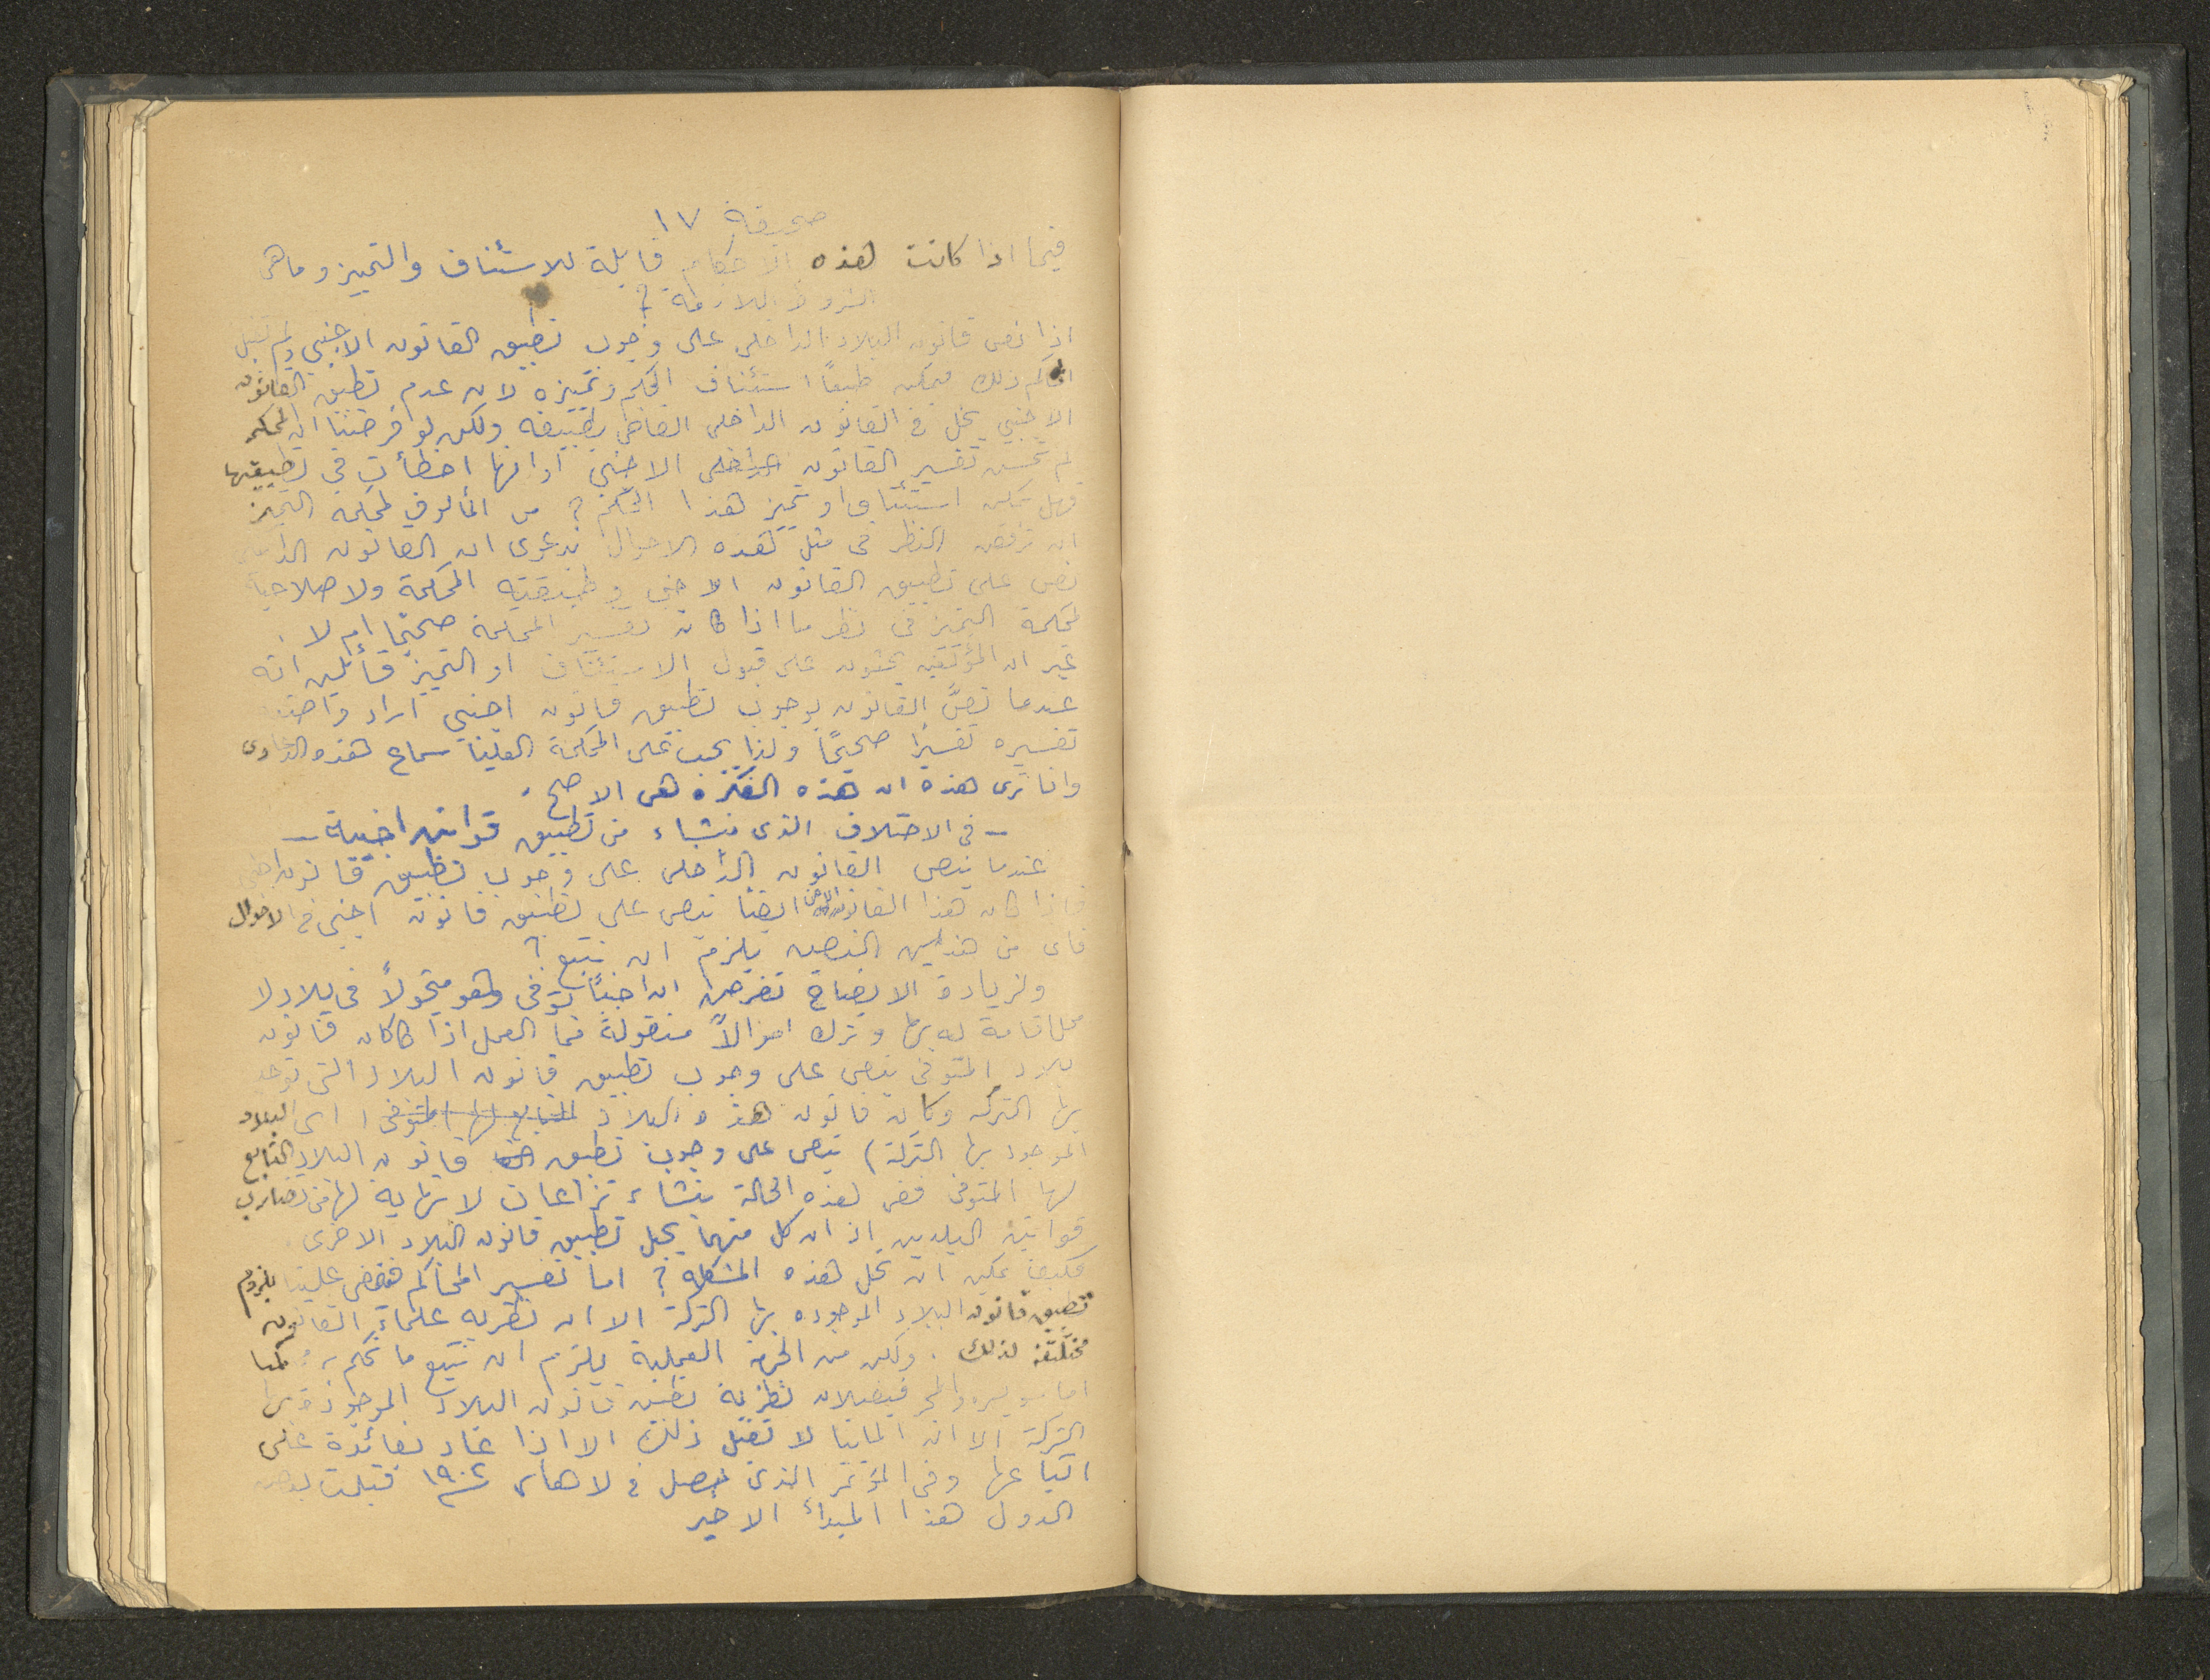 صحيفة ١٧
فيما اذا كانت هذه الاحكام قابلة للاستئناف والتميز وما هى
الشروط اللازمة ؟
اذا نص قانون البلاد الداخلى على وجوب تطبيق القانون الاجنبي ولم تقبل
المحاكم ذلك فيمكن طبعاً استئناف الحكم وتميزه لان عدم تطبيق القانون
الاجنبي يخل في القانون الداخلى القاضى بتطبيقه ولكن لو فرضنا ان المحكمه
لم تحسن تفسير القانون الداخلى الاجنبي او انها اخطأت في تطبيقها
فهل يمكن استئناف او تميز هذا الحكم ؟ من المألوف لمحكمة التميز
ان ترفض النظر فى مثل هذه الاحوال بدعوى ان القانون الداخلى
نص على تطبيق القانون الاجنبى وطبقته المحكمة ولا صلاحية
لمحكمة التميز فى نظر ما اذا كان تفسير المحكمة صحيحًا ام لا .
غير ان المؤلفين يحثون على قبول الاستئناف او التميز قائلين انه
عندما نصَّ القانون بوجوب تطبيق قانون اجنبي اراد
تفسيره تفسيرًا صحيحًا ولذا يجب على المحكمة العليا سماع هذه الدعاوى
وانا نرى هذه ان هذه الفكره هى الاصح .
– فى الاختلاف الذى ينشاء من تطبيق قوانين اجنبية –
عندما ينص القانون الداخلى على وجوب تطبيق قانون اجنبى
فاذا كان هذا القانون الاجنبى ايضًا ينص على تطبيق قانون اجنبى فى الاحوال
فاى من هذين النصين يلزم ان نتبع ؟
ولزيادة الايضاح نفرض ان اجنبيًا توفى وهو متجولاً فى بلاد لا
محل اقامة له بها وترك اموالاً منقولةً فما العمل اذا كاكان قانون
بلاد المتوفى ينص على وجوب تطبيق قانون البلاد التى توجد
بها التركه وكان قانون هذه البلاد التابع لها المتوفى ( اى البلاد
الموجود بها التركة ) ينص على وجوب تطبيق قانون البلاد التابع
لها المتوفى ففى هذه الحالة ينشاء نزاعات لا نهاية لها فى تضارب
قوانين البلدين اذ ان كل منهما يحيل تطبيق قانون البلاد الاخرى
فكيف يمكن ان تحل هذه المشكلة ؟ اما تفسير المحاكم فتقضى علينا بلزوم
تطبيق قانون البلاد الموجوده بها التركة الا ان نظريه علماء القانون
مختلفة لذلك . ولكن من الجهة العملية يلزم ان نتبع ما تحكم به
اما سويسره والمجر فيفضلان نظرية تطبيق قانون البلاد الموجودة بها
التركة الا ان المانيا لا تقبل ذلك الا اذا عاد بفائدة على
اتباعها وفى المؤتمر الذى حصل فى لاهاى ١٩٠٢ قبلت بعض
الدول هذا المبدأ الاخير